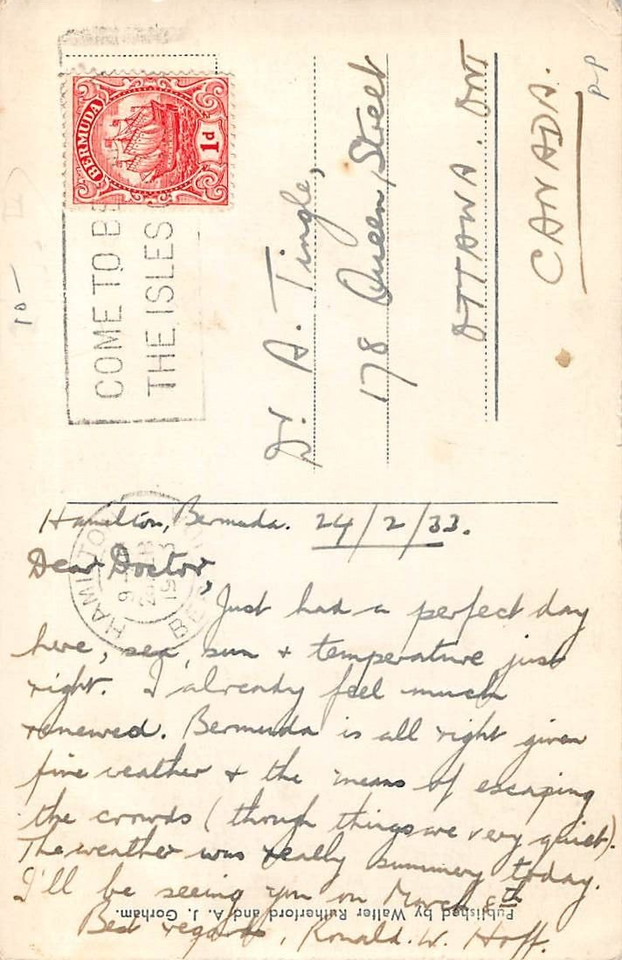 BERMUDA
1d
COME TO BE
THE ISLES
Dr. A. Tingle,
178 Queen Street
OTTAWA. ONT
CANADA.
P-P
10-
HAMILTON
Hamilton, Bermuda. 24/2/33.
Dear Doctor,
Just had a perfect day
here, sea, sun + temperature just
right. I already feel much
renewed. Bermuda is all right given
fine weather + the means of escaping
the crowds (though things are very quiet).
The weather was really summery today.
I'll be seeing you on March 8th
Best regards, Ronald. W. Hoff.
Published by Walter Rutherford and A. J. Gorham.